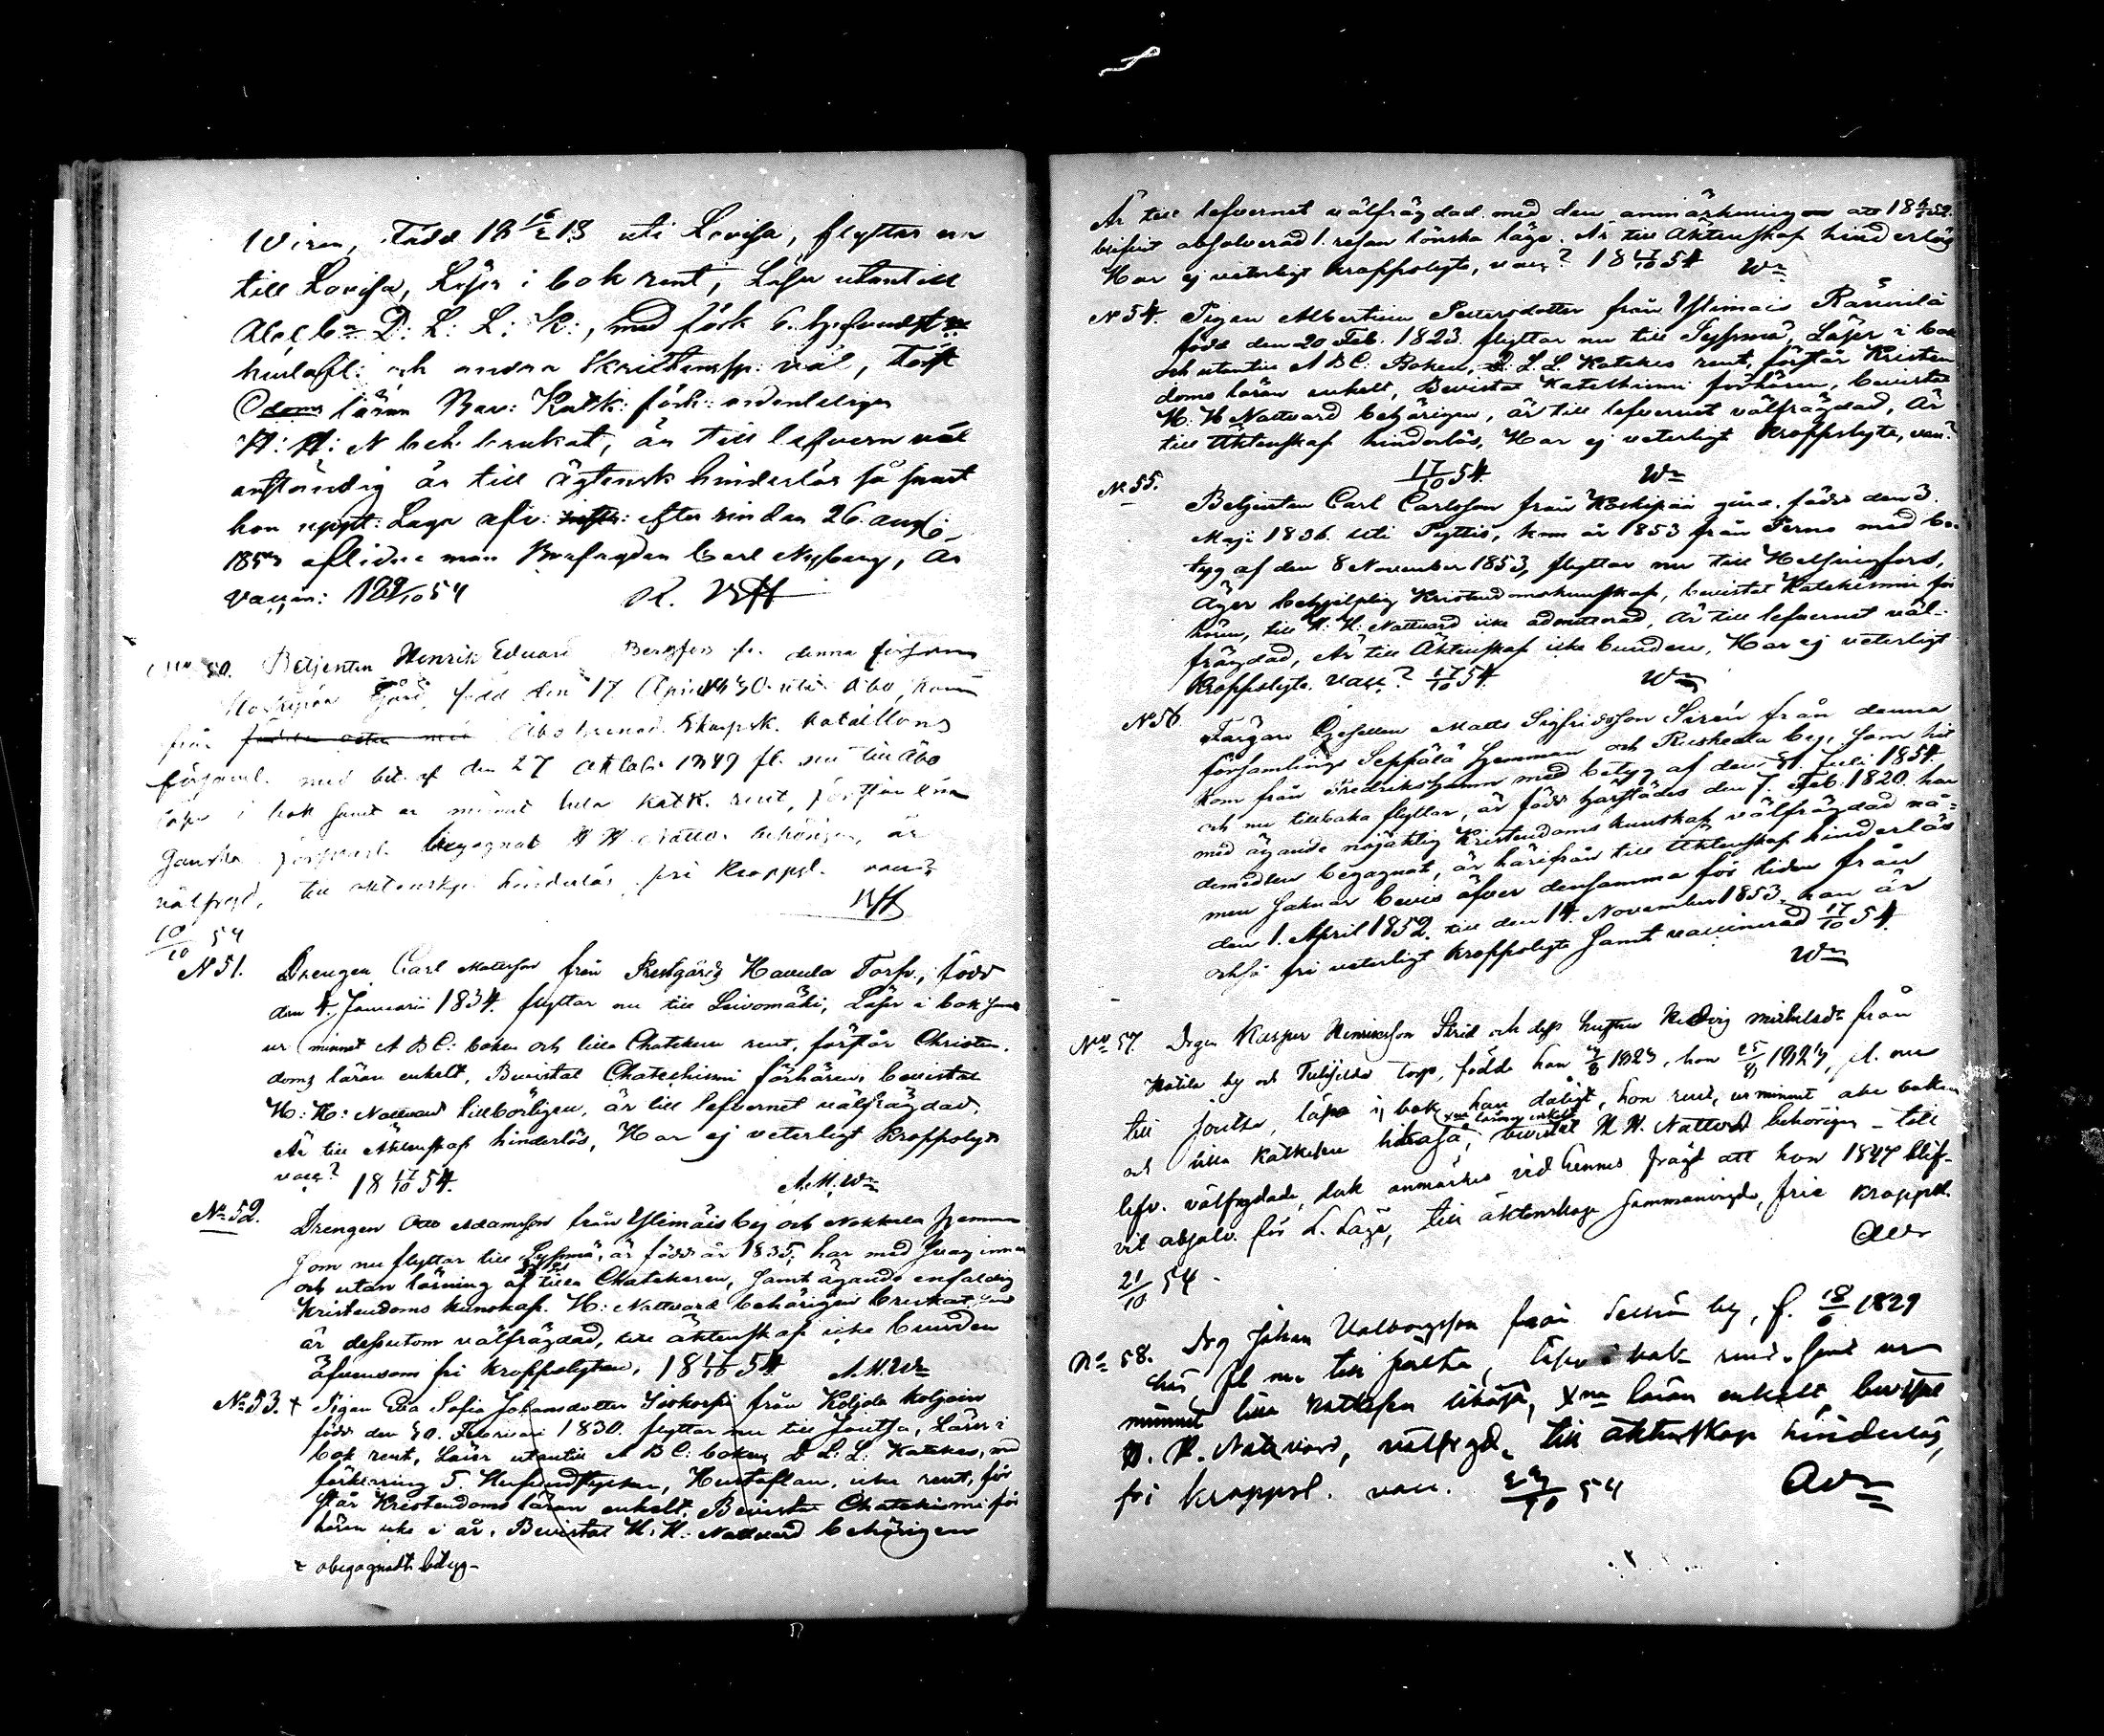 Wiren, född 18 16/2 13 uti Lovisa, flyttar nu
till Lovisa, Läser i bok rent, Läser utantill
Abc b. D: L: L: K:, med förk 6. hufvudst
hustafl: och andra Skriftensp: väl, förstr
doms läran Bev: Katk: förh: ordenteligen
H: H: N beh. brukat, är till lefvern väl
anständig är till ägtensk hinderlös så snart
hon uppt: Laga afv: efter sin den 26. aug
1853 aflidne man Carl Nyberg, är
vaccin: 1854
No 50. Betjenten Henrik Eduard Bergfors fr. denna förs
gård, född den 17 April 1830 uti Åbo, kom
från Åbo Grenad. Skarpsk. bataillons
församl. med bet. af den 27 Oktob. 1849 fl. nu till Åbo
läser i bok samt ur minnet hela Katk. rent, förstår
ganska begagnat H H Nattv. behörigen, är
välfrejd. till äktenskap hinderlös fri kroppsl. vacc?
10/10 54
N 51. Drengen Carl Matsson från Prestgårds Havula Torp, född
den 4. Januarii 1834. flyttar nu till Leivomäki, Läser i bok samt
ur minnet A B C: boken och lilla Chatekesen rent, förstår Christen-
doms läran enkelt, Bevistat Chatechismi förhören, bevistat
H: H: Nattvard tillbörligen, är till lefvernet välfrägdad.
Är till Äktenskap hinderlös, Har ej veterligt kroppslyte
vacc? 18 17/10 54. A.M.Wn
No 52. Drengen Otto Adamsson från Ylimäis by och Nokkala hemman
som nu flyttar till Sysmä, är född år 1835, har med svag innan
och utan läsning af lilla Chatekesen, samt ägande enfaldig
Kristendoms kunskap. H: Nattvard behörigen brukat, samt
är dessutom välfrägdad, till äktenskap icke bunden
äfvensom fri kroppslyten, 18 17/10 54 A.M.Wn
No 53. + Pigan Eva Sofia Johansdotter från Koljola
född den 20. Februari 1830. flyttar nu till Joutsa, Läser i
bok rent, Läser utantill A B C: boken, D L: L: Katekes, med
förklaring 5. Hufvudstycken, Hustaflan, icke rent, för
står Kristendoms läran enkelt, Bevistat Chatekismi för
hören icke i år, Bevistat H: H: Nattvard behörigen
+ obegagnadt betyg
Är till lefvernet välfrägdad med den anmärkning att 1852.
blifvit absolverad 1. resan lönska läge. Är till Äktenskap hinderlös
Har ej veterligt kroppslyte, vacc? 18 17/10 54 Wn
No 54. Pigan Albertina Petersdotter från Ylimäis Rannila
född den 20 Feb. 1823. flyttar nu till Sysmä, Läser i bok
och utantill A B C: Boken, D. L. L. Katekes rent, förstår Kristen
doms läran enkelt, Bevistat Katekismi förhören, bevistat
H. H Nattvard behörigen, är till lefvernet välfrägdad, Är
till Äktenskap hinderlös, Har ej veterligt kroppslyte, vacc?
17/10 54. Wn
No 55. Betjenten Carl Carlsson från Koskipää gård. född den 3.
Maji 1836. uti Pyttis, kom år 1853 från Perno med be-
tyg af den 8 November 1853, flyttar nu till Helsingfors,
Äger behjelplig Kristendomskunskap, bevistat Katekismi för
hören, till H: H: Nattvard icke admitterad, Är till lefvernet väl-
frägdad, Är till Äktenskap icke bunden, Har ej veterligt
kroppslyte. vacc? 17/10 54. Wn
No 56. Färgare Gesellen Matts Sigfridsson Sirén från denna
församlings Seppälä hemman och Ruskeala by, som hit
kom från Fredrikshamn med betyg af den 31. Juli 1854.
och nu tillbaka flyttar, är född härstädes den 7. Feb. 1820. har
med ägande nöjaktig Kristendoms kunskap välfrägdad nå-
demedlen begagnat, är härifrån till äktenskap hinderlös
men saknar bevis öfver densamma för tiden från
den 1. April 1852. till den 14. November 1853, han är
också fri veterligt kroppslyte samt vaccinerad 17/10 54.
Wn
No 57. Drgn Kasper Henriksson Strid och dess hustru Hedvig Mikelsdr från
by och torp, födde han 1823, hon 25/11 1824, fl. nu
till Joutsa, läser i bok han dåligt, hon rent, ur minnet abc boken
och lilla Katkesen likaså, xna läran enkelt, bevistat H H. Nattvrd behörigen - till
lefv. välfrejdade, dock anmärkes vid hennes frägd att hon 1847 blif-
vit absolv. för L. Läge, till äktenskap sammanvigde, frie kroppsl.
21/10 54.
No 58. Drg Johan Valborgsson från by, f. 18/6 1829
här, fl nu till Joutsa, läser i bok rent, samt ur
minnet lilla Katkesen likaså, xna läran enkelt, bevistat
H. H. Nattvard, välfrejd. till äktenskap hinderlös,
fri kroppsl. vacc. 54